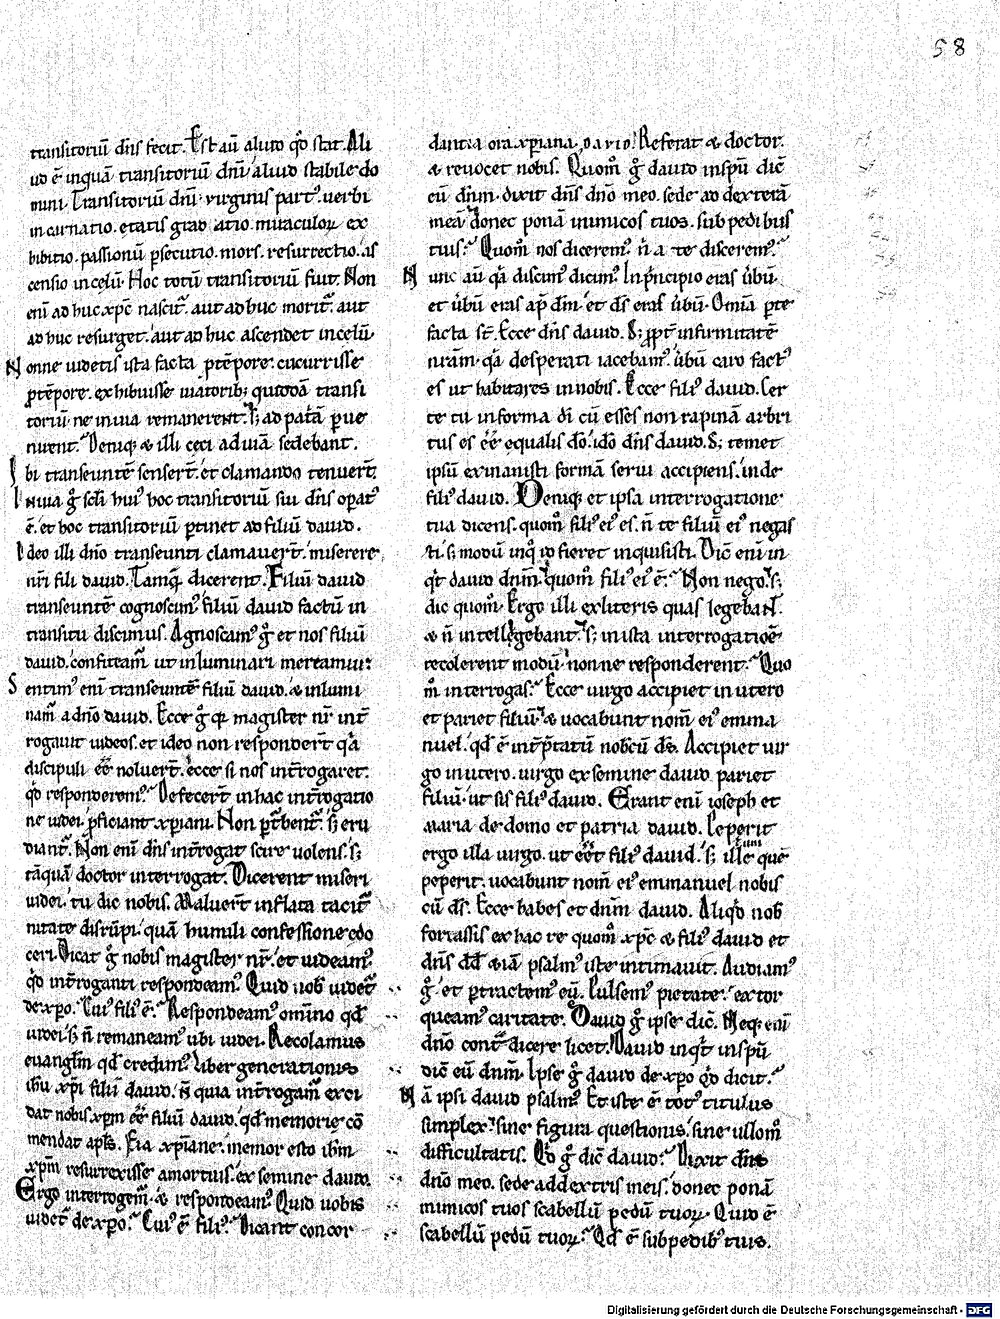 58
transitoriū dn̄s fecit. Est aū aliud qd̊ stat. Ali
ud ē inquā transitoriū dn̄i aliud stabile do
mini. Transitoriū dn̄i virginis part᷒. uerbi
incarnatio. etatis grad atio. miraculoꝝ ex
bibitio. passionū ꝑsecutio. mors. resurrectio. as
censio in celū. Hoc totū transitoriū fuit. Non
eni ad huc xp̄c nascit᷒. aut ad huc morit᷒. aut
ad huc resurget. aut ad huc ascendet in celū
Nonne uidetis ista facta ꝑtēpore. cucurrisse
ꝑtēpore. exhibuisse uiatorib; quiddā transi
toriū ne in uia remanerent. s; ad patā ꝑue
nirent. Deniq; & illi ceci ad uiā sedebant.
Ibi transeuntē sensert̄. et clamando tenuert̄.
In uia g̊ scł̄i hui᷒ hoc transitoriū sui dn̄s opat᷒
ē. et hoc transitoriū ꝑtinet ad filiū dauid.
Ideo illi dn̄o transeunti clamauert̄. miserere
nr̄i fili dauid. Tamq̄ dicerent. Filiū dauid
transeuntē cognoscim᷒. filiū dauid factū in
transitu discimus. Agnoscam᷒ g̊ et nos filiū
dauid. confiteam̄ ut inluminari mereamur.
Sentim᷒ eni transeuntē filiū dauid. & inlumi
nam̄ a dn̄o dauid. Ecce g̊ qr̄ magister nr̄ int̄
rogauit iudeos. et ideo non respondert̄ qa
discipuli ēē noluert̄. ecce si nos int̄rogaret.
qd̊ responderem᷒. Defecert̄ in hac int̄rogatio
ne iudei ꝓficiant xp̄iani. Non ꝑt̄bent᷒. s; eru
diant᷒. Non eni dn̄s int̄rogat scire uolens. s;
tāquā doctor interrogat. Dicerent miseri
iudei. tu dic nobis. Maluert̄ inflata tacit᷒
nitate disrūpi. quā humili confessione edo
ceri. Dicat g̊ nobis magister nr̄. et uideam᷒
qd̊ int̄roganti respondeam᷒. Quid uob̄ uidet᷒
de xp̄o. Cui᷒ fili᷒ ē. Respondeam᷒ omīno qd̄
iudei. s; n̄ remaneam᷒ ubi iudei. Recolamus
euanglīm qd̄ credim᷒. liber generationis
ih̄u xp̄i filii dauid. N̄ quia int̄rogam̄ exci
dat nobis xp̄m ēē filiū dauid. qd̄ memorie cō
mendat apłs. Eia xp̄iane. memor esto ihm̄
xp̄m resurrexisse a mortuis. ex semine dauid.
Ergo interrogem᷒. & respondeam᷒. Quid uobis
uidet᷒ de xp̄o. Cui᷒ ē fili᷒. Dicant concor
dantia ora xp̄iana. dauid. Referat & doctor.
& reuocet nobis. Quom̊ g̊ dauid in spū dic̄
eū dn̄m. dixit dn̄s dn̄o meo. sede ad dexterā
meā donec ponā inimicos tuos. sub pedibus
tuis. Quom̊ nos dicerem᷒. n̄ a te discerem᷒.
Nunc aū qa discim᷒ dicim᷒. In pⁱncipio eras ūbū
et ūbū eras ap̄ dm̄. et dš eras ūbū. Omīa ꝑ te
facta st̄. Ecce dn̄s dauid. S; ꝓpt̄ infirmitatē
nrām. qa desperati iacebam᷒. ūbū caro fact᷒
es ut habitares in nobis. Ecce fili᷒ dauid. Cer
te tu in forma dī cū esses non rapinā arbi
tus es ēē equalis dō. idō dn̄s dauid. S; temet
ipsū exinanisti formā serui accipiens. inde
fili᷒ dauid. Deniq; et ipsa interrogatione
tua dicens. quom̊ fili᷒ ei᷒ es. n̄ te filiū ei᷒ negas
ti. s; modū inq̊ id fieret inquisisti. Dic̄ eni in
qⁱt dauid dn̄m. quom̊ fili᷒ ei᷒ ē. Non nego. s;
dic quom̊. Ergo illi ex literis quas legebant.
& n̄ intellegebant. s; in ista interrogatioē
recolerent modū. nonne responderent. Quo
m̊ interrogas. Ecce uirgo accipiet in utero
et pariet filiū. & uocabunt nom̄ ei᷒ emma
nuel. qd̄ ē int̄p̄tatū nobcū dš. Accipiet uir
go in utero. uirgo ex semine dauid. pariet
filiū. ut sis fili᷒ dauid. Erant eni ioseph et
maria de domo et patria dauid. Peperit
ergo illa uirgo. ut eēt fili᷒ dauid. s; illē quē
peperit. uocabunt nom̄ ei᷒ emmanuel nobis
cū dš. Ecce habes et dn̄m dauid. Aliqd̊ nob̄
fortassis ex hac re quom̊ xp̄c & fili᷒ dauid et
dn̄s dd̄ &iā psalm᷒ iste intimauit. Audiam᷒
g̊. et ꝑtractem᷒ eū. Pulsem᷒ pietate. extor
queam᷒ caritate. Dauid g̊ ipse dic̄. Neq; eni
dn̄o cont̄dicere licet. Dauid inqⁱt in spū
dic̄ eū dn̄m. Ipse g̊ dauid de xp̄o qd̊ dicit.
Nā ipsi dauid psalm᷒. Et iste ē tot᷒ titulus
simplex. sine figura questionis. sine ullom̄
difficultatis. Qd̊ g̊ dic̄ dauid. Dixit dn̄s
dn̄o meo. sede ad dextris meis. donec ponā
inimicos tuos scabellū pedū tuoꝝ. Quid ē
scabellū pedū tuoꝝ. Qd̄ ē sub pedib᷒ tuis.
Digitalisierung gefördert durch die Deutsche Forschungsgemeinschaft - DFG